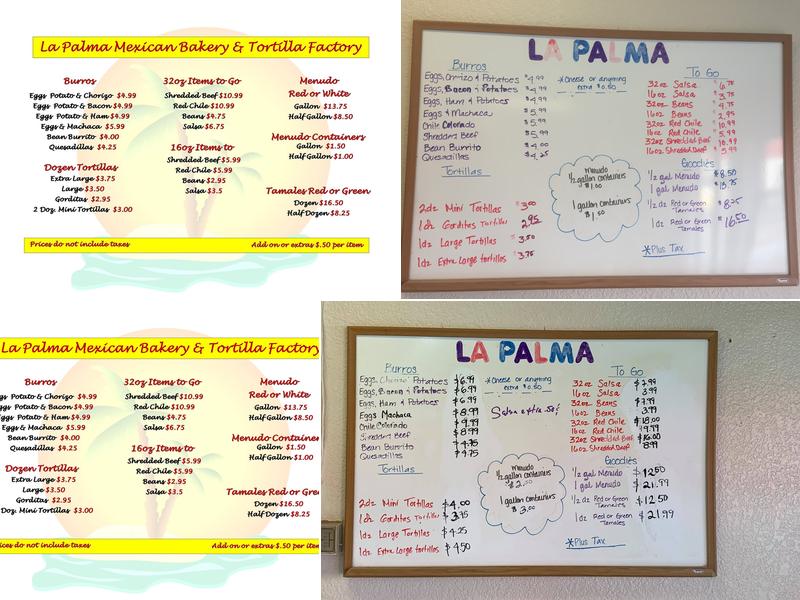 La Palma Mexican Bakery & Tortilla Factory
Burros
Eggs Potato & Chorizo $4.99
Eggs Potato & Bacon $4.99
Eggs Potato & Ham $4.99
Eggs & Machaca $5.99
Bean Burrito $4.00
Quesadillas $4.25
Dozen Tortillas
Extra Large $3.75
Large $3.50
Gorditas $2.95
2 Doz. Mini Tortillas $3.00
32oz Items to Go
Shredded Beef $10.99
Red Chile $10.99
Beans $4.75
Salsa $6.75
16oz Items to
Shredded Beef $5.99
Red Chile $5.99
Beans $2.95
Salsa $3.5
Menudo
Red or White
Gallon $13.75
Half Gallon $8.50
Menudo Containers
Gallon $1.50
Half Gallon $1.00
Tamales Red or Green
Dozen $16.50
Half Dozen $8.25
Prices do not include taxes
Add on or extras $.50 per item
LA PALMA
Burros
Eggs, Chorizo & Potatoes $4.99
Eggs, Bacon & Potatoes $4.99
Eggs, Ham & Potatoes $4.99
Eggs & Machaca $5.99
Chile Colorado $5.99
Shredded Beef $5.99
Bean Burrito $4.00
Quesadillas $4.25
Tortillas
2dz Mini Tortillas $3.00
1dz Gorditas Tortillas 2.95
1dz Large Tortillas $3.50
1dz Extra Large tortillas $3.75
*Cheese or anything
extra $0.50
Menudo
1/2 gallon containers
$1.00
1 gallon containers
$1.50
To Go
32oz Salsa $6.75
16oz Salsa $3.75
32oz Beans $4.75
16oz Beans $2.95
32oz Red Chile $10.99
16oz Red Chile $5.99
32oz Shredded Beef $10.99
16oz Shredded Beef $5.99
Goodies
1/2 gal Menudo $8.50
1 gal Menudo $13.75
1/2 dz Red or Green
Tamales $8.25
1dz Red or Green
Tamales $16.50
*Plus Tax
La Palma Mexican Bakery & Tortilla Factory
Burros
gs Potato & Chorizo $4.99
gs Potato & Bacon $4.99
ggs Potato & Ham $4.99
Eggs & Machaca $5.99
Bean Burrito $4.00
Quesadillas $4.25
Dozen Tortillas
Extra Large $3.75
Large $3.50
Gorditas $2.95
Doz. Mini Tortillas $3.00
32oz Items to Go
Shredded Beef $10.99
Red Chile $10.99
Beans $4.75
Salsa $6.75
16oz Items to
Shredded Beef $5.99
Red Chile $5.99
Beans $2.95
Salsa $3.5
Menudo
Red or White
Gallon $13.75
Half Gallon $8.50
Menudo Container
Gallon $1.50
Half Gallon $1.00
Tamales Red or Gre
Dozen $16.50
Half Dozen $8.25
ices do not include taxes
Add on or extras $.50 per item
LA PALMA
Burros
Eggs, Chorizo & Potatoes $6.99
Eggs, Bacon & Potatoes $6.99
Eggs, Ham & Potatoes $6.99
Eggs Machaca $8.99
Chile Colorado $8.99
Shredded Beef $8.99
Bean Burrito $4.75
Quesadillas $4.75
Tortillas
2dz Mini Tortillas $4.00
1dz Gorditas Tortillas $3.95
1dz Large Tortillas $4.25
1dz Extra Large tortillas $4.50
*Cheese or anything
extra $0.50
Salsa extra .50¢
Menudo
1/2 gallon containers
$2.50
1 gallon containers
$3.00
To Go
32oz Salsa
16oz Salsa 3.99
32oz Beans
16oz Beans 3.99
32oz Red Chile $18.00
16oz Red Chile 9.99
32oz Shredded Beef $16.00
16oz Shredded Beef 8.99
Goodies
1/2 gal Menudo $12.50
1 gal Menudo $21.99
1/2 dz Red or Green
Tamales $12.50
1dz Red or Green
Tamales $21.99
*Plus Tax